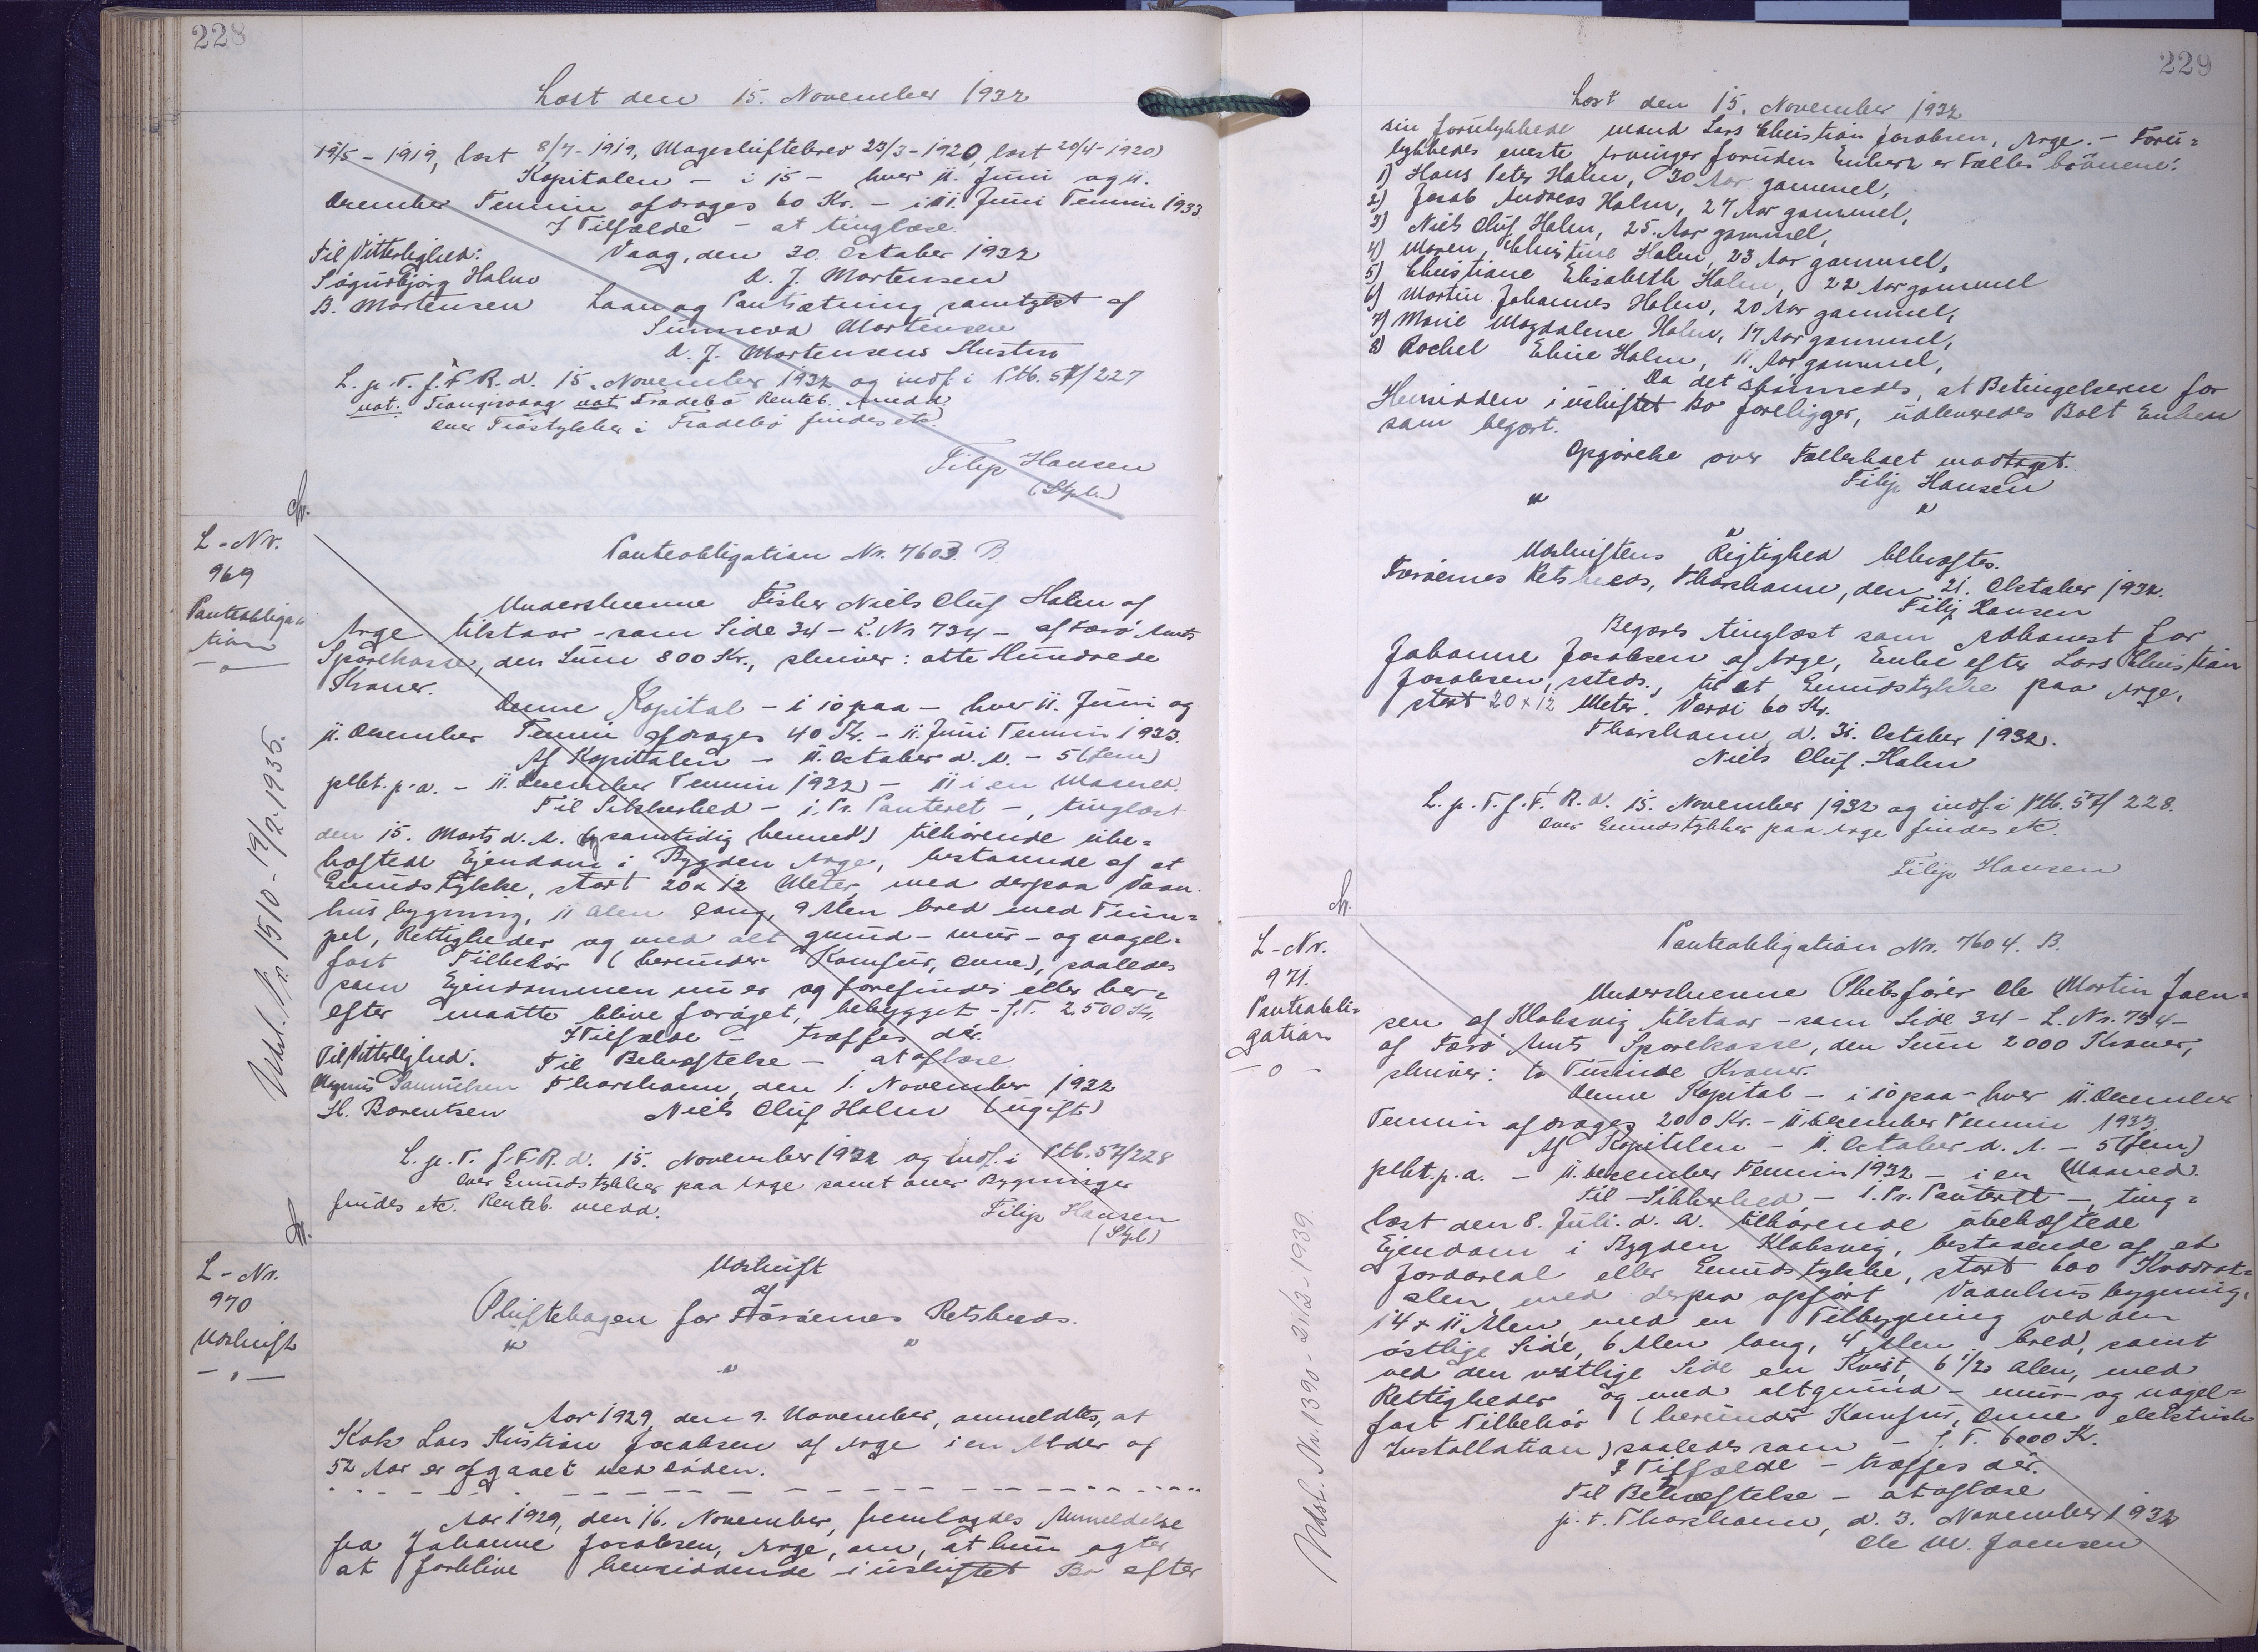 228
Læst den 15. November 1932
19/5 - 1919, læst 8/7 - 1919, Mageskiftebrev 23/3 - 1920, læst 20/4 - 1920)
Kapitalen - i 15 - hver 11. Juni og 11.
December Termin afdrages 60 Kr. - i 11. Juni Termin 1933.
I Tilfælde - at tinglæse.
Til Vitterlighed: Vaag, den 30. October 1932
Sigurbjørg Holm D. J. Mortensen
B. Mortensen Laan og Pantsætning samtykt af
Sunneva Mortensen
D. J. Mortensens Hustru
L. p. T. f. F. R. d. 15. November 1932 og indf. i Ptb. 57/227
not. Trangisvaag not Frodebø Renteb. medd.
over Jordstykker i Frodebø findes etc.
Filip Hansen
(Stpl.)
L-Nr.
969
Panteobliga-
tion
Panteobligation Nr. 7603. B
Underskrevne Fisker Niels Oluf Holm af
Arge tilstaar - som Side 34 - L. Nr 734 - af Færø Amts
Sparekasse, den Sum 800 Kr., skriver: otte Hundrede
Kroner.
Denne Kapital - i 10 paa - hver 11. Juni og
11. December Termin afdrages 40 Kr. - 11. Juni Termin 1933.
Af Kapitalen - 11. October d. A. - 5 (fem)
pCt. p. a. - 11. December Termin 1932 - 11 i en Maaned.
Til Sikkerhed - i. Pr. Panteret -, tinglæst
den 15. Marts d. A. og samtidig hermed) tilhørende ube-
hæftede Ejendom i Bygden Arge, bestaaende af et
Grundstykke, stort 20 x 12 Meter, med derpaa Vaan-
husbygning, 11 Alen lang, 9 Alen bred med Tilhø-
rel, Rettigheder og med alt grund- mur- og nagel-
fast Tilbehør (herunder Komfur, Ovne), saaledes
som Ejendommen nu er og forefindes eller her-
efter maatte blive forøget, bebygget - f. T. 2500 Kr.
I Tilfælde - træffes dér.
Til Vitterlighed: Til Bekræftelse - at aflæse
Magnus Samuelsen Thorshavn, den 1. November 1932
H. Berentsen Niels Oluf Holm (ugift)
L. p. T. f. F. R. d. 15. November 1932 og indf. i Ptb. 57/228
Over Grundstykker paa Arge samt over Bygninger
findes etc. Renteb. medd.
Filip Hansen
(Stpl)
Udsl. Nr. 1510 - 19/2 - 1935.
L-Nr.
970
Udskrift
Udskrift
af
Skiftebogen for Færøernes Retskreds.
Aar 1929, den 9. November, anmeldtes, at
Kok Lars Kristian Jacobsen af Arge i en Alder af
52 Aar er afgaaet ved Døden.
Aar 1929, den 16. November, fremlagdes Anmeldelse
fra Johanne Jacobsen, Arge, om, at hun agter
at forblive hensiddende i uskiftet Bo efter
229
Læst den 15. November 1932
sin forulykkede Mand Lars Christian Jacobsen, Arge. - Foru-
lykkedes eneste Arvinger foruden Enken er Fælles børnene:
1) Hans Peter Holm, 30 Aar gammel,
2) Jacob Andreas Holm, 27 Aar gammel,
3) Niels Oluf Holm, 25. Aar gammel,
4) Maren Christine Holm, 23 Aar gammel,
5) Christiane Elisabeth Holm, 22 Aar gammel
6) Martin Johannes Holm, 20 Aar gammel,
7) Marie Magdalene Holm, 17 Aar gammel,
8) Rachel Eline Holm, 11. Aar gammel,
Da det skønnedes, at Betingelserne for
Hensidden i uskiftet Bo foreligger, udleveredes Boet Enken
som begært.
Opgørelse over Fællesboet modtaget.
Filip Hansen
Udskriftens Rigtighed bekræftes.
Færøernes Retskreds, Thorshavn, den 21. October 1932.
Filip Hansen
Begæres tinglæst som Adkomst for
Johanne Jacobsen af Arge, Enke efter Lars Christian
Jacobsen, ssteds., til et Grundstykke paa Arge,
stort 20 x 12 Meter. Værdi 60 Kr.
Thorshavn, d. 31. October 1932.
Niels Oluf Holm
L. p. T. f. F. R. d. 15. November 1932 og indf. i Ptb. 57/228.
Over Grundstykker paa Arge findes etc.
Filip Hansen
L-Nr.
971.
Panteobli-
gation
Panteobligation Nr. 7604. B.
Underskrevne Skibsfører Ole Martin Joen-
sen af Klaksvig tilstaar - som Side 34 - L. Nr. 734 -
af Færø Amts Sparekasse, den Sum 2000 Kroner,
skriver: to Tusinde Kroner.
Denne Kapital - i 10 paa - hver 11. December
Termin afdrages 200 Kr. - 11 December Termin 1933.
Af Kapitalen - 11. October d. A. - 5 (fem)
pCt. p. a. - 11. December Termin 1932 - i en Maaned.
Til Sikkerhed - i. Pr. Panteret -, ting-
læst den 8. Juli. d. A. tilhørende ubehæftede
Ejendom i Bygden Klaksvig, bestaaende af et
Jordareal eller Grundstykke, stort 600 Kvadrat-
alen med derpaa opført Vaanhusbygning,
14 x 11 Alen, med en Tilbygning ved den
østlige Side, 6 Alen lang, 4 Alen bred, samt
ved den vestlige Side en Kvist, 6 1/2 Alen, med
Rettigheder og med alt grund- mur- og nagel-
fast Tilbehør (herunder Komfur, Ovne, elektrisk
Installation) saaledes som - f. T. 6000 Kr.
I Tilfælde - træffes dér.
Til Bekræftelse - at aflæse
p. t. Thorshavn, d. 3. November 1932
Ole M. Joensen
Udsl. Nr. 1390 - 21/2 - 1939.